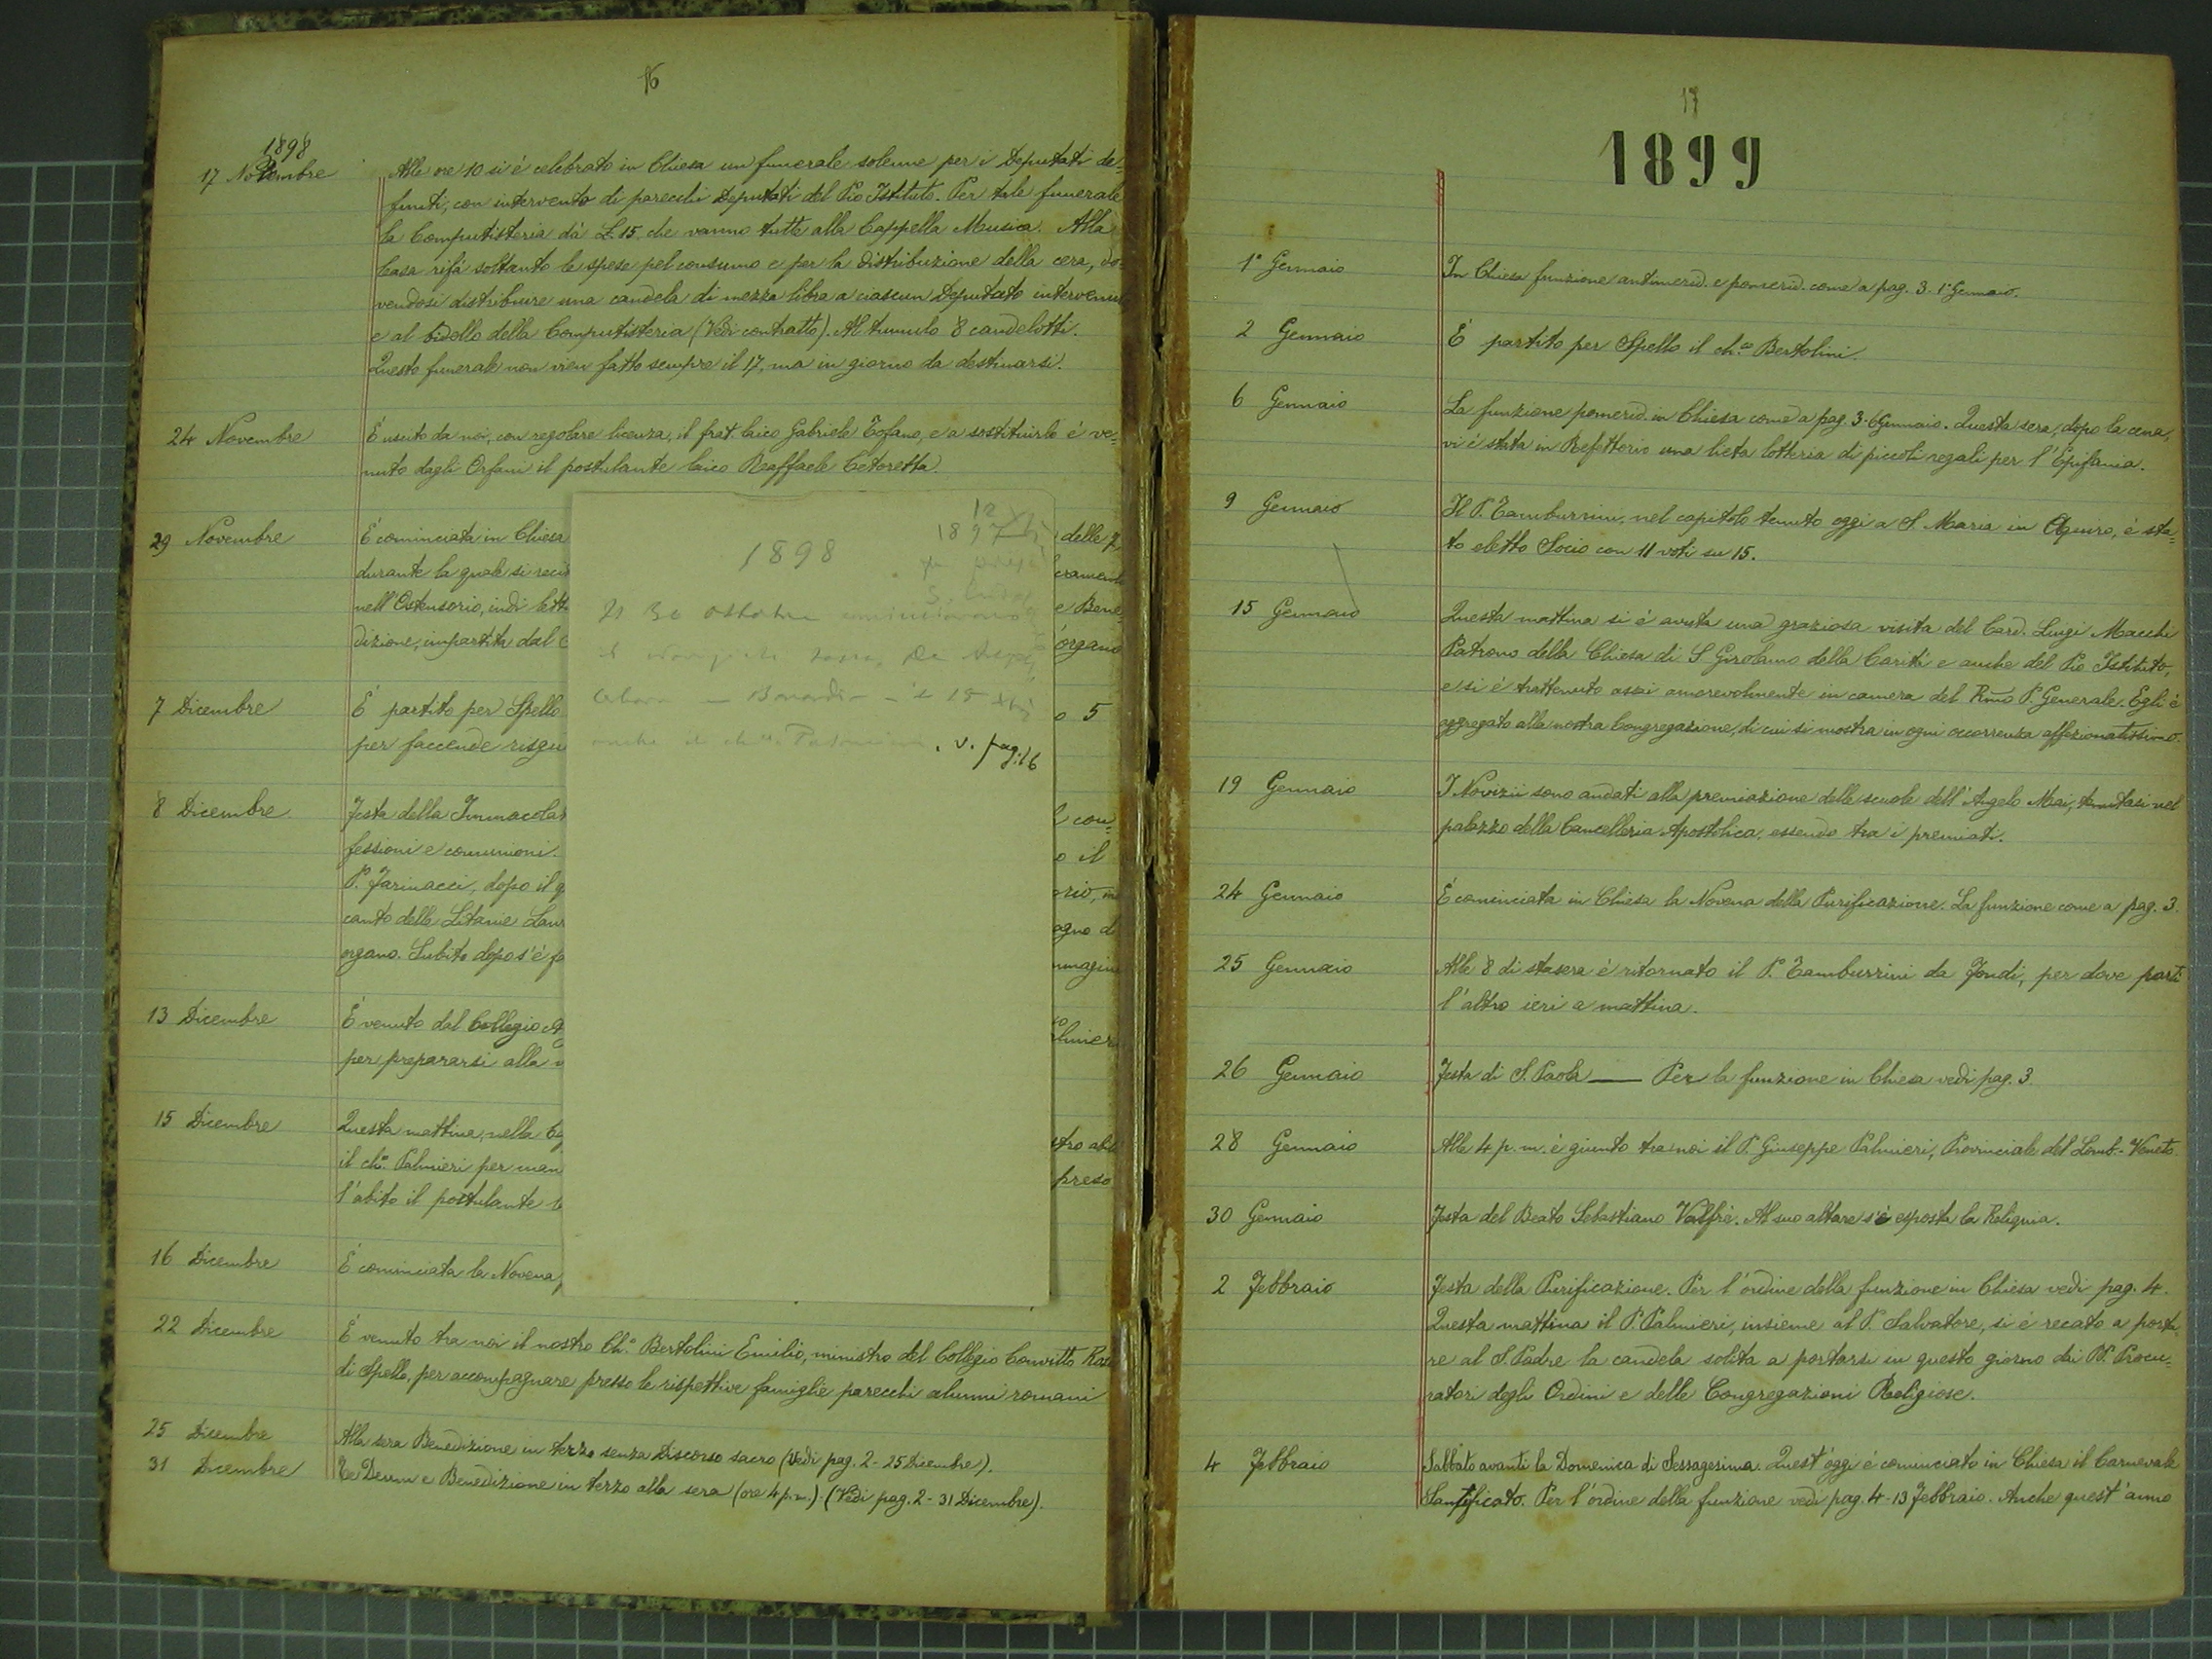 16
1898
17 Novembre Alle ore 10 si è celebrato in Chiesa un funerale solenne per i Deputati de-
funti, con intervento di parecchi Deputati del Pio Istituto. Per tale funerale
la Computisteria dà L. 15. che vanno tutte alla Cappella Musica. Alla
Casa rifà soltanto le spese pel consumo e per la distribuzione della cera, do-
vendosi distribuire una candela di mezza libra a ciascun Deputato
e al bidello della Computisteria (Vedi contratto). Al tumulo 8 candelotti.
Questo funerale non vien fatto sempre il 17, ma in giorno da destinarsi.
24 Novembre È uscito da noi, con regolare licenza, il frat. laico Gabriele Tofano, e a sostituirlo è ve-
nuto dagli Orfani il postulante laico Raffaele Cetoretta.
29 Novembre È cominciata in Chiesa delle
durante la quale si
nell'Ostensorio, indi e Bene
dizione, impartita dal organo
7 Dicembre È partito per Spello o 5
per faccende
8 Dicembre Festa della con-
fessioni e comunioni. o il
P. Farinacci, dopo il
canto delle Litanie
organo. Subito dopo s'è
13 Dicembre È venuto dal Collegio
per prepararsi alla
15 Dicembre Questa mattina, nella
il ch.º Palmieri per preso
l'abito il postulante
16 Dicembre È cominciata la Novena
22 Dicembre È venuto tra noi il nostro Ch.º Bertolini Emilio, ministro del Collegio Convitto
di Spello, per accompagnare presso le rispettive famiglie parecchi alunni romani
25 Dicembre Alla sera Benedizione in terzo senza Discorso sacro (Vedi pag. 2 - 25 Dicembre).
31 Dicembre Te Deum e Benedizione in terzo alla sera (ore 4 p.m.). (Vedi pag. 2 - 31 Dicembre).
12
1897
1898
30 ottobre
il
15
anche il v. pag. 16
17
1899
1º Gennaio In Chiesa funzione antimerid. e pomerid. come a pag. 3. 1º Gennaio.
2 Gennaio È partito per Spello il ch.º Bertolini.
6 Gennaio La funzione pomerid. in Chiesa come a pag. 3. 6 Gennaio. Questa sera, dopo la cena,
vi è stata in Refettorio una lieta lotteria di piccoli regali per l'Epifania.
9 Gennaio Il P. Tamburrini, nel capitolo tenuto oggi a S. Maria in Aquiro, è sta=
to eletto Socio con 11 voti su 15.
15 Gennaio Questa mattina si è avuta una graziosa visita del Card. Luigi Macchi
Patrono della Chiesa di S. Girolamo della Carità e anche del Pio Istituto,
e si è trattenuto assai amorevolmente in camera del Rmo P. Generale. Egli è
aggregato alla nostra Congregazione, di cui si mostra in ogni occorrenza affezionatissimo.
19 Gennaio I Novizii sono andati alla premiazione delle scuole dell'Angelo Mai, tenutasi nel
palazzo della Cancelleria Apostolica, essendo tra i premiati.
24 Gennaio È cominciata in Chiesa la Novena della Purificazione. La funzione come a pag. 3.
25 Gennaio Alle 8 di stasera è ritornato il P. Tamburrini da Fondi, per dove partì
l'altro ieri a mattina.
26 Gennaio Festa di S. Paola — Per la funzione in Chiesa vedi pag. 3.
28 Gennaio Alle 4 p.m. è giunto tra noi il P. Giuseppe Palmieri, Provinciale del Lomb.-Veneto.
30 Gennaio Festa del Beato Sebastiano Valfrè. Al suo altare s'è esposta la Reliquia.
2 Febbraio Festa della Purificazione. Per l'ordine della funzione in Chiesa vedi pag. 4.
Questa mattina il P. Palmieri, insieme al P. Salvatore, si è recato a porta-
re al S. Padre la candela solita a portarsi in questo giorno dai PP. Procu-
ratori degli Ordini e delle Congregazioni Religiose.
4 Febbraio Sabbato avanti la Domenica di Sessagesima. Quest'oggi è cominciato in Chiesa il Carnevale
Santificato. Per l'ordine della funzione vedi pag. 4 - 13 Febbraio. Anche quest'anno